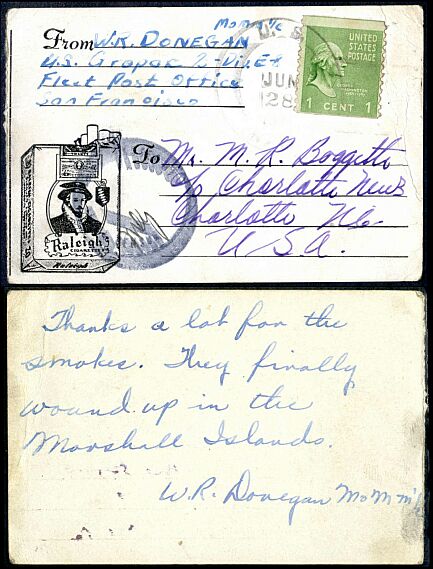 MoMM 1/c
From W.R. DONEGAN
U.S. Gropac 2-Div. E4
Fleet Post Office
San Francisco
U. S.
JUN
28
UNITED
STATES
POSTAGE
1 CENT 1
To Mr. M. R. Boggetto
c/o Charlotte News
Charlotte N.C.
U.S.A.
Raleigh
CIGARETTES
Raleigh
Thanks a lot for the
smokes. They finally
wound up in the
Marshall Islands.
W.R. Donegan MoMM